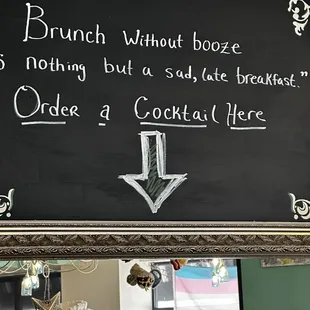 Brunch without booze
nothing but a sad, late breakfast."
Order a Cocktail Here